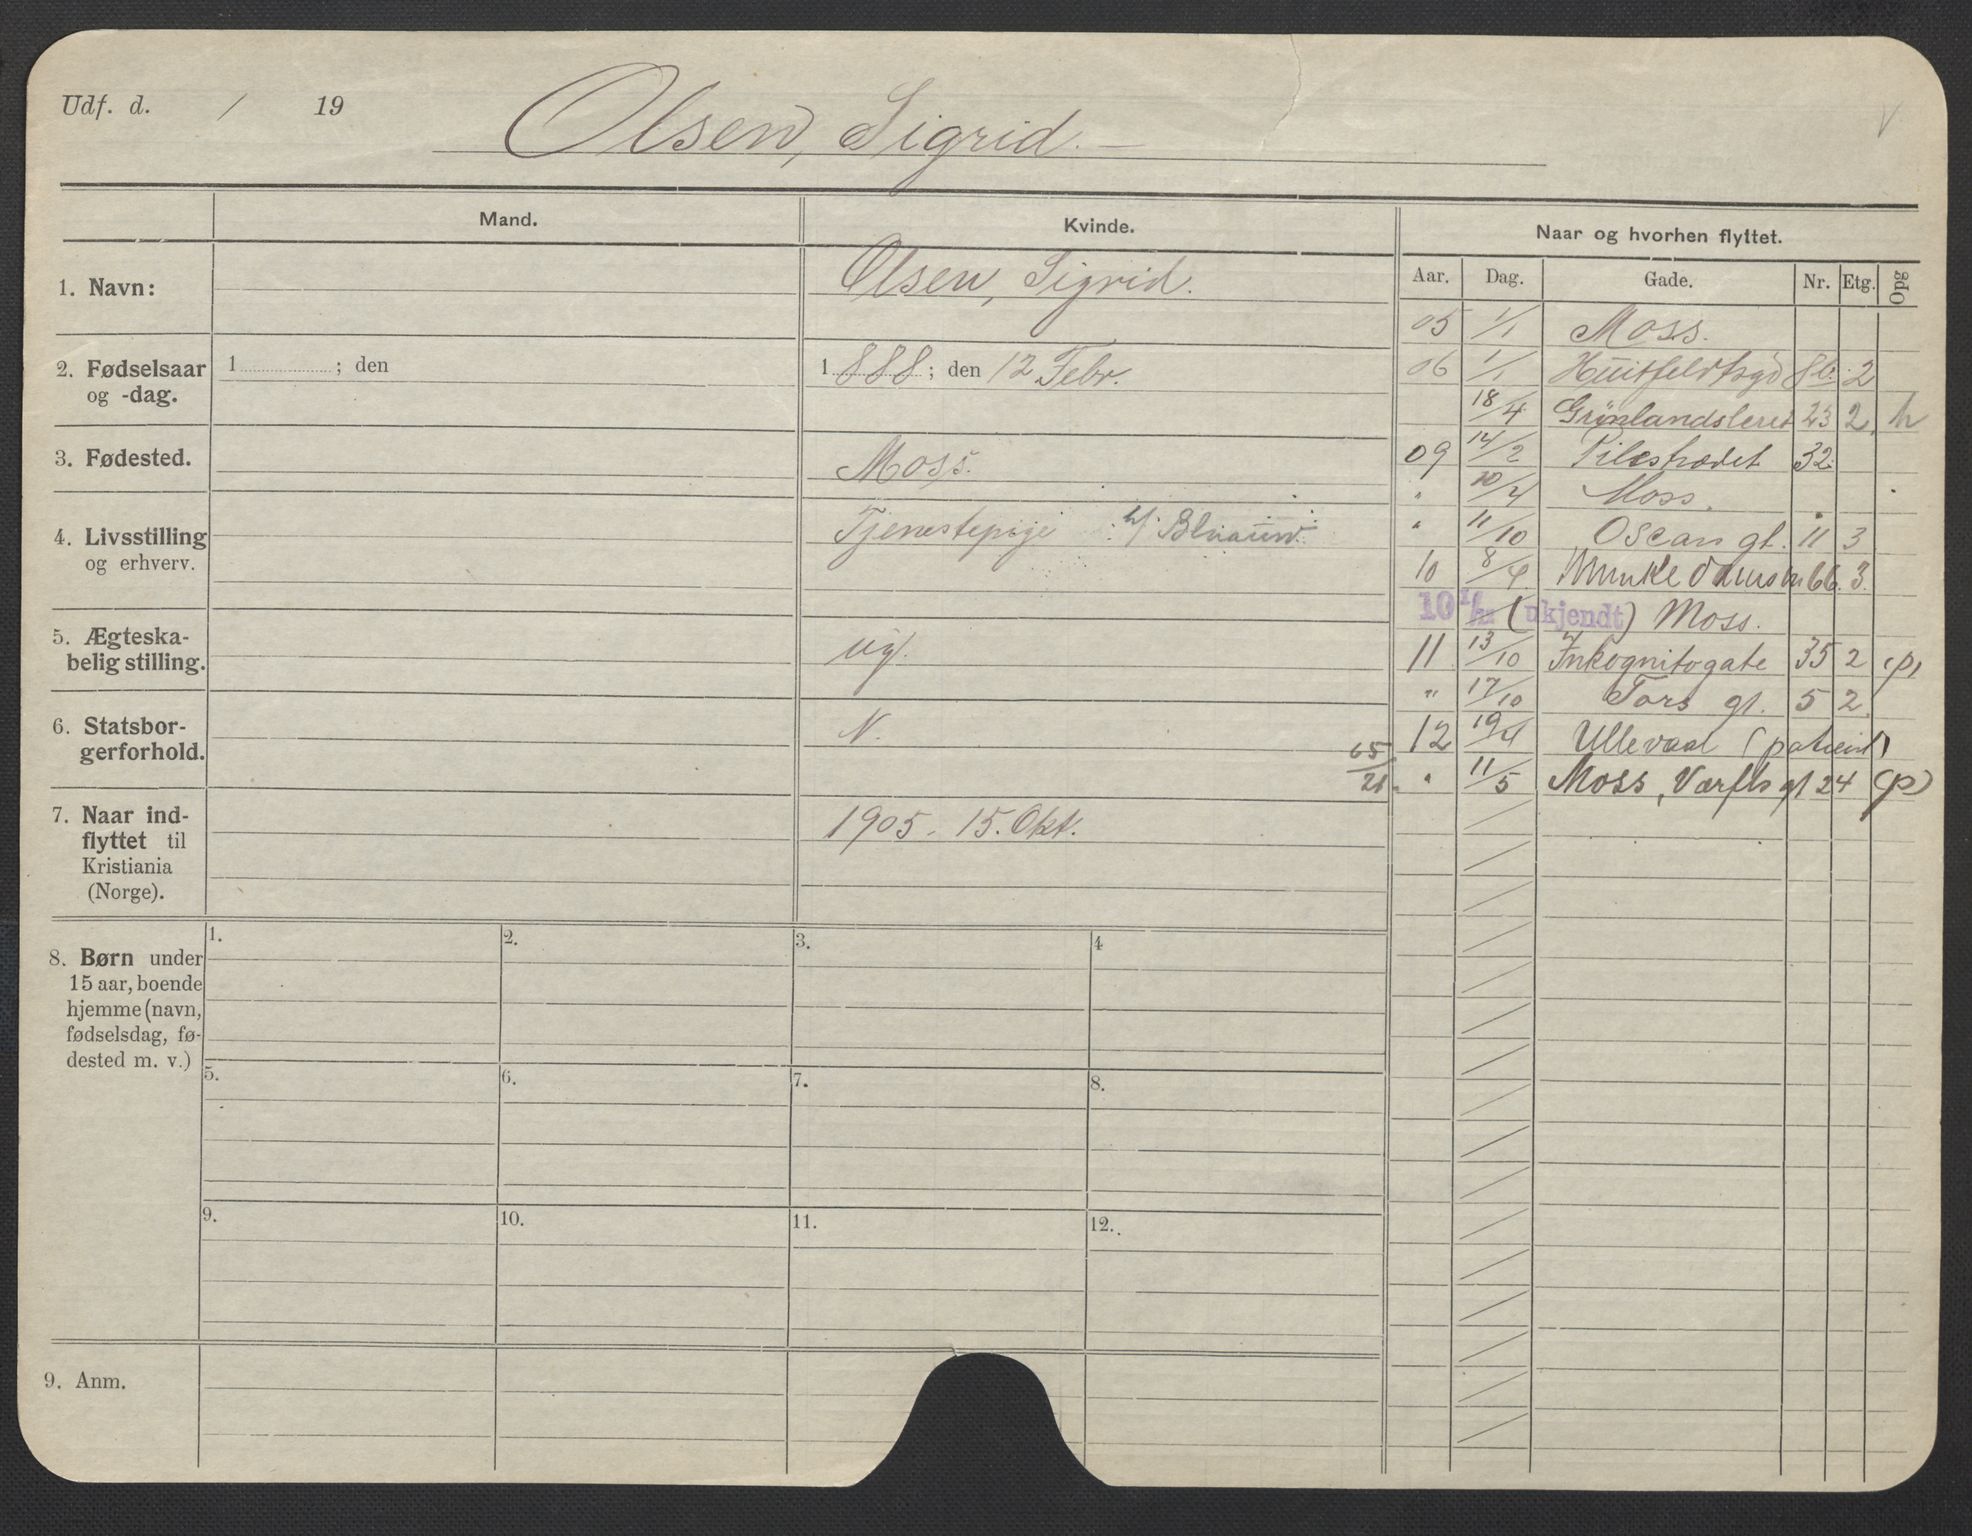 Udf. d. / 19
Olsen, Sigrid.
Mand.
Kvinde.
Naar og hvorhen flyttet.
Aar. Dag. Gade. Nr. Etg. Opg
1. Navn:
Olsen, Sigrid.
2. Fødselsaar
og -dag.
1 ; den
1888; den 12 Febr.
3. Fødested.
Moss.
4. Livsstilling
og erhverv.
Tjenestepige
5. Ægteska-
belig stilling.
ug.
6. Statsbor-
gerforhold.
N.
7. Naar ind-
flyttet til
Kristiania
(Norge).
1905. 15. Okt.
05 1/1 Moss.
06 1/1 Huitfeldtsgd 8b. 2
18/4 Grønlandsleret 23 2. h
09 14/2 Pilestrædet 32.
" 10/4 Moss.
" 11/10 Oscars gt. 11 3
10 8/4 66. 3.
10 (ukjendt) Moss.
11 13/10 Inkognitogate 35 2 (p)
" 17/10 Tors gt. 5 2
12 19/4 Ullevaal (patient)
65/21. " 11/5 Moss, Værfts gt 24 (p)
8. Børn under
15 aar, boende
hjemme (navn,
fødselsdag, fø-
dested m. v.)
1. 2. 3. 4
5. 6. 7. 8.
9. 10. 11. 12.
9. Anm.